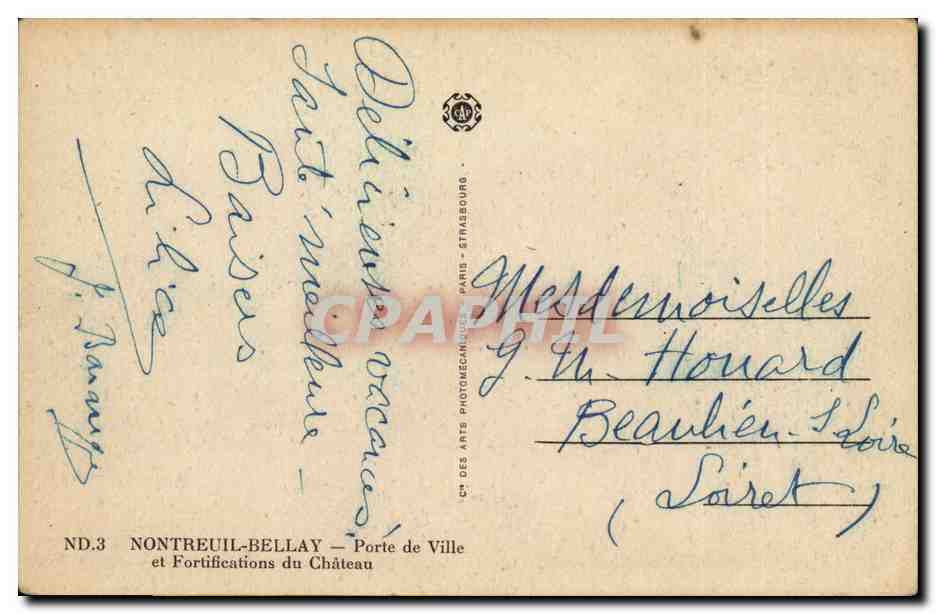 Délicieuses vacances,
Santé meilleure -
Baisers
CAP
Cie DES ARTS PHOTOMÉCANIQUES - PARIS - STRASBOURG -
Mesdemoiselles
G. M. Houard
Beaulieu - S Loire
(Loiret)
CPAPHIL
ND.3 NONTREUIL-BELLAY — Porte de Ville
et Fortifications du Château